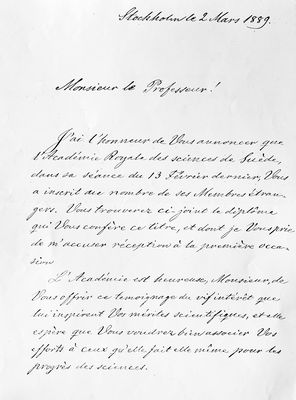 Stockholm le 2 Mars 1889.
Monsieur le Professeur!
J'ai l'honneur de Vous annoncer que
l'Académie Royale des sciences de Suède,
dans sa séance du 13 Février dernier, Vous
a inscrit au nombre de ses Membres étran-
gers. Vous trouverez ci-joint le diplôme
qui Vous confère ce titre, et dont je Vous prie
de m'accuser réception à la première occa-
sion.
L'Académie est heureuse, Monsieur, de
Vous offrir ce temoignage du vif intérêt que
lui inspirent Vos mérites scientifiques, et elle
espère que Vous voudrez bien associer Vos
efforts à ceux qu'elle fait elle même pour les
progrès des sciences.